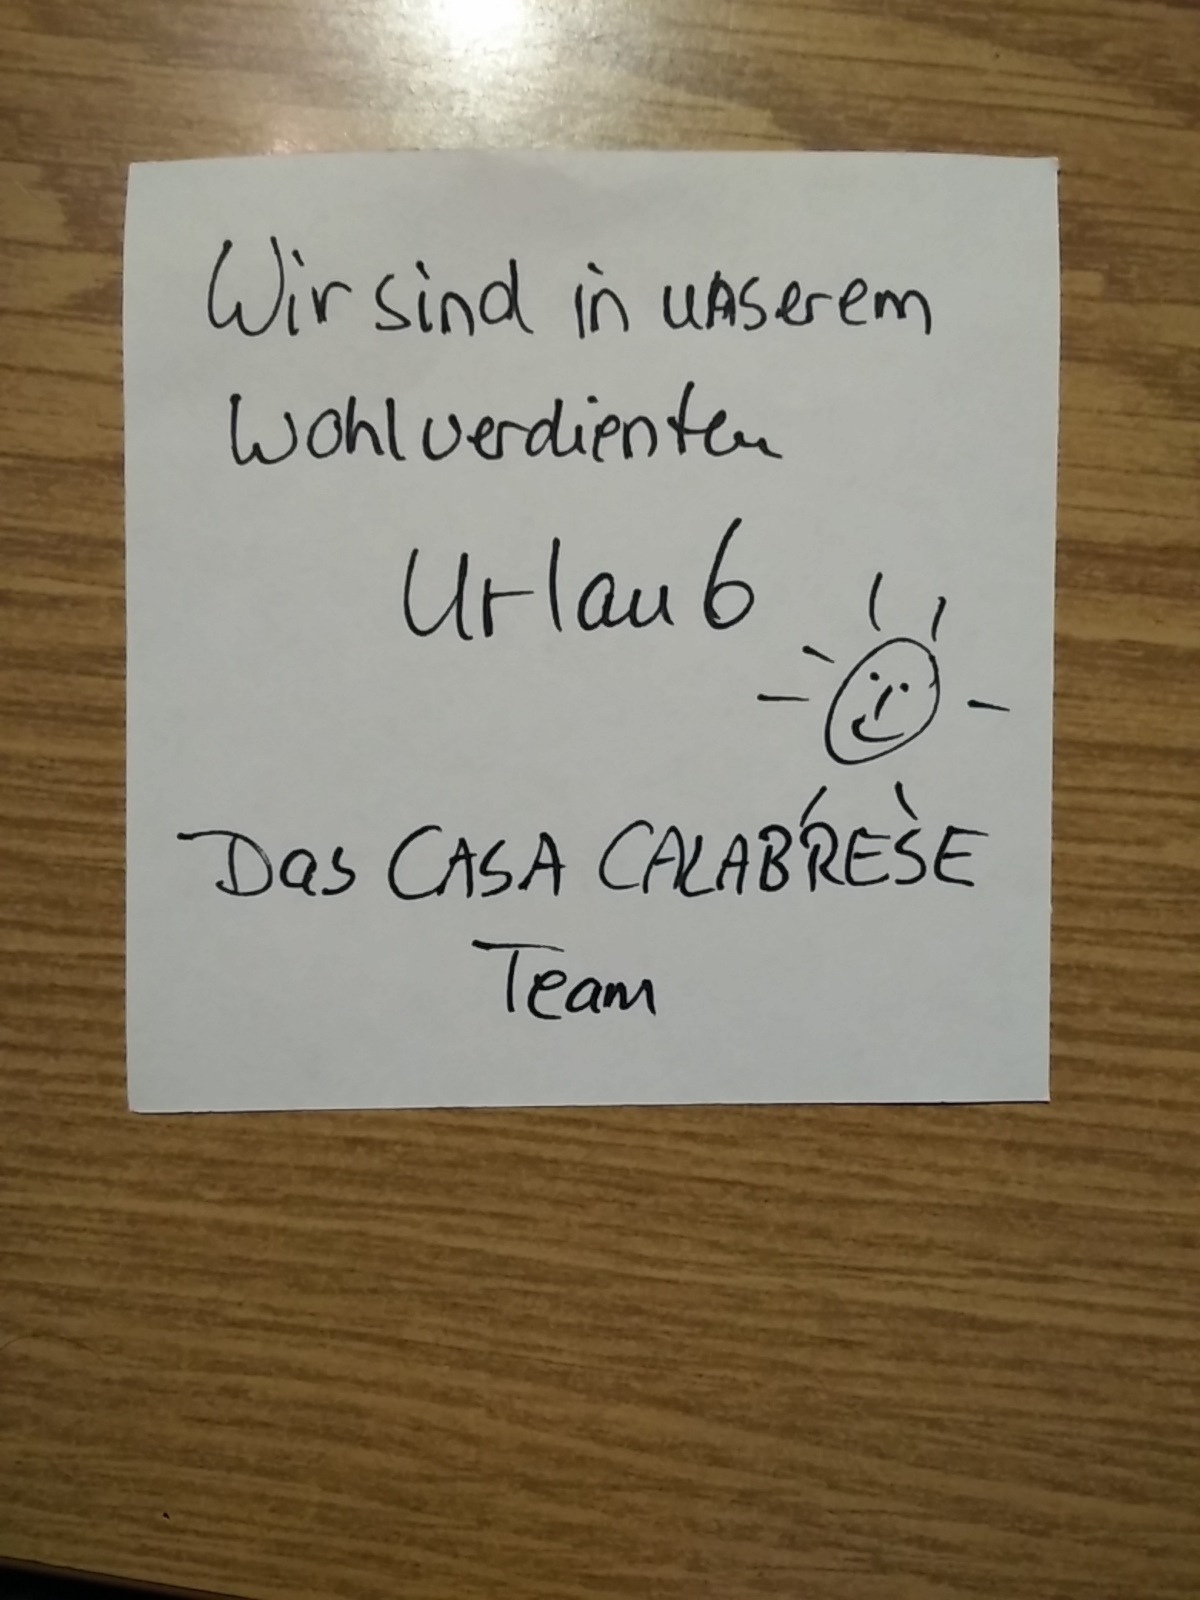 Wir sind in unserem
wohlverdienten
Urlaub
Das CASA CALABRESE
Team